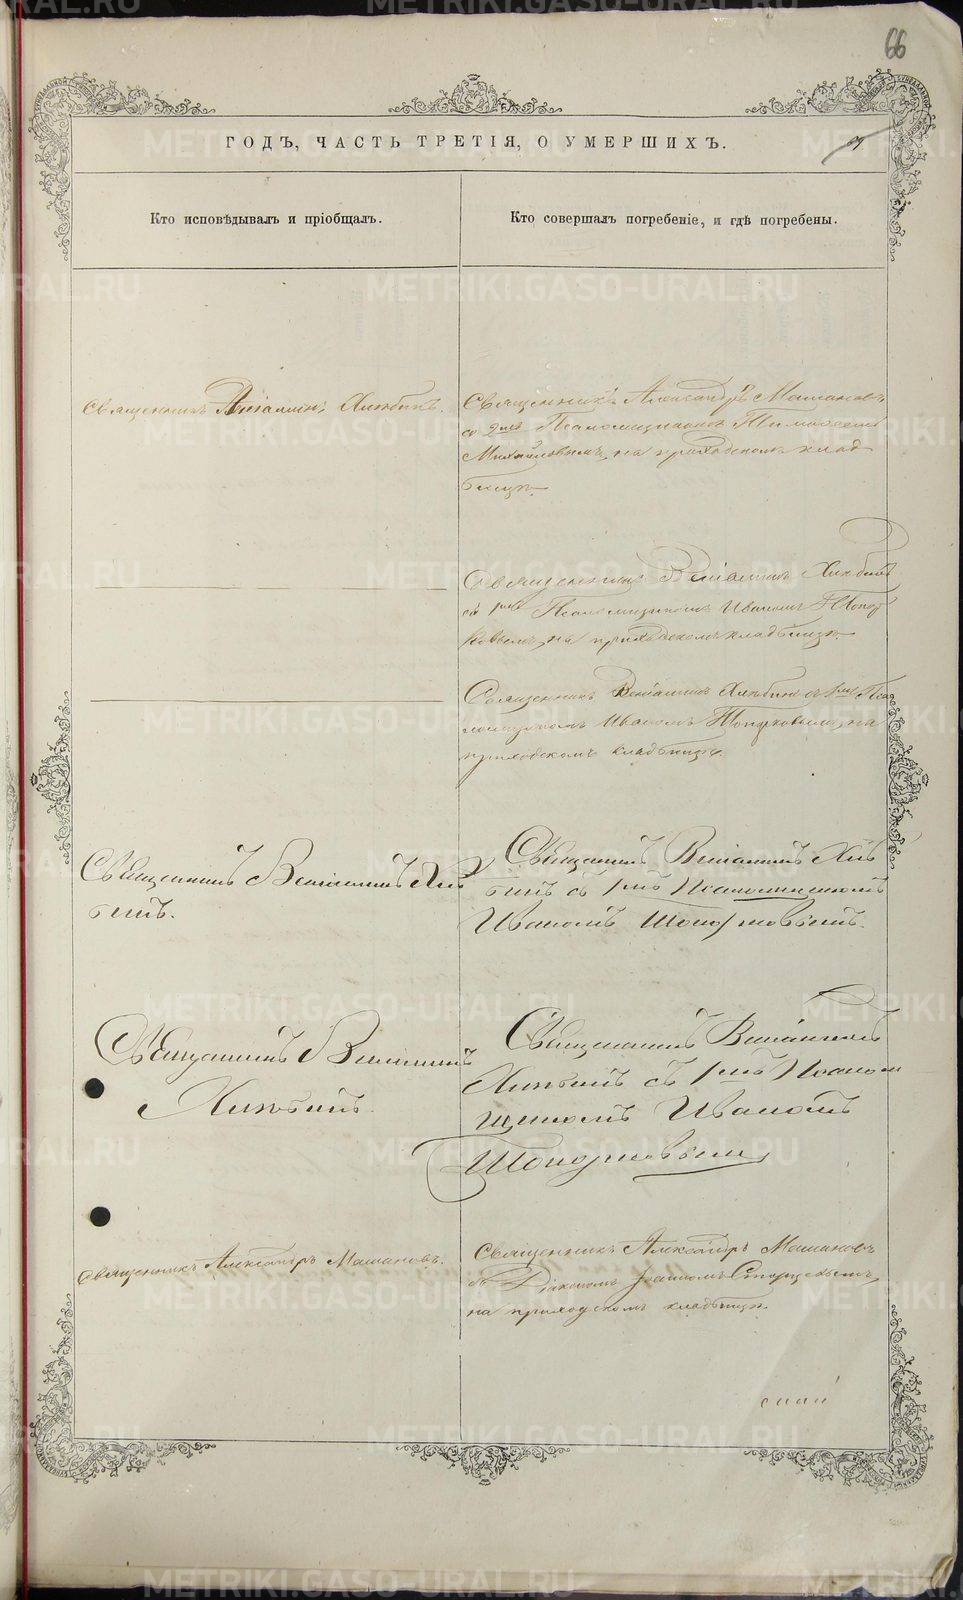 66
ГОДЪ, ЧАСТЬ ТРЕТІЯ, О УМЕРШИХЪ.
Кто исповѣдывалъ и пріобщалъ.
Кто совершалъ погребеніе, и гдѣ погребены.
Священникъ Веніаминъ Хлѣбинъ.
Священникъ Александръ Машановъ
со 2мъ Псаломщикомъ Тимоѳеемъ
Михайловымъ, на приходскомъ клад
бищѣ.
Священникъ Веніаминъ Хлѣбинъ
съ 1мъ Псаломщикомъ Иваномъ Топор
ковымъ, на приходскомъ кладбищѣ.
Священникъ Веніаминъ Хлѣбинъ съ 1мъ Пса
ломщикомъ Иваномъ Топорковымъ, на
приходскомъ кладбищѣ.
Священникъ Веніаминъ Хлѣ
бинъ.
Священникъ Веніаминъ Хлѣ
бинъ съ 1мъ Псаломщикомъ
Иваномъ Топорковымъ.
Священникъ Веніаминъ
Хлѣбинъ.
Священникъ Веніаминъ
Хлѣбинъ съ 1мъ Псалом
щикомъ Иваномъ
Топорковымъ
Священникъ Александръ Машановъ.
Священникъ Александръ Машановъ
съ Діакономъ Іоанномъ Старцевымъ,
на приходскомъ кладбищѣ.
METRIKI.GASO-URAL.RU